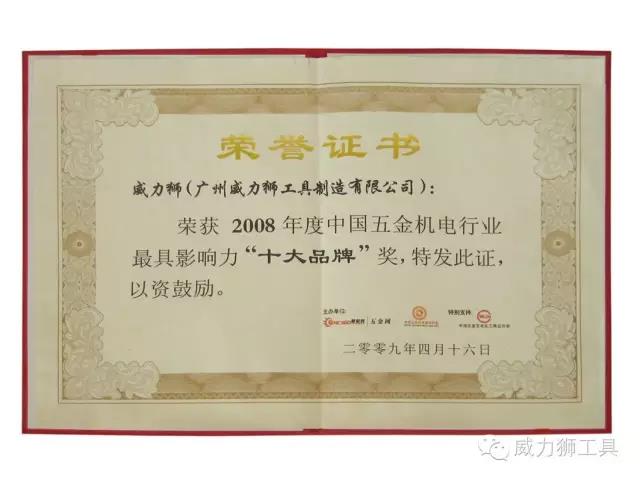 荣誉证书
威力狮(广州威力狮工具制造有限公司):
荣获 2008 年度中国五金机电行业
最具影响力“十大品牌”奖,特发此证,
以资鼓励。
主办单位: 特别支持:
五金网
二零零九年四月十六日
威力狮工具